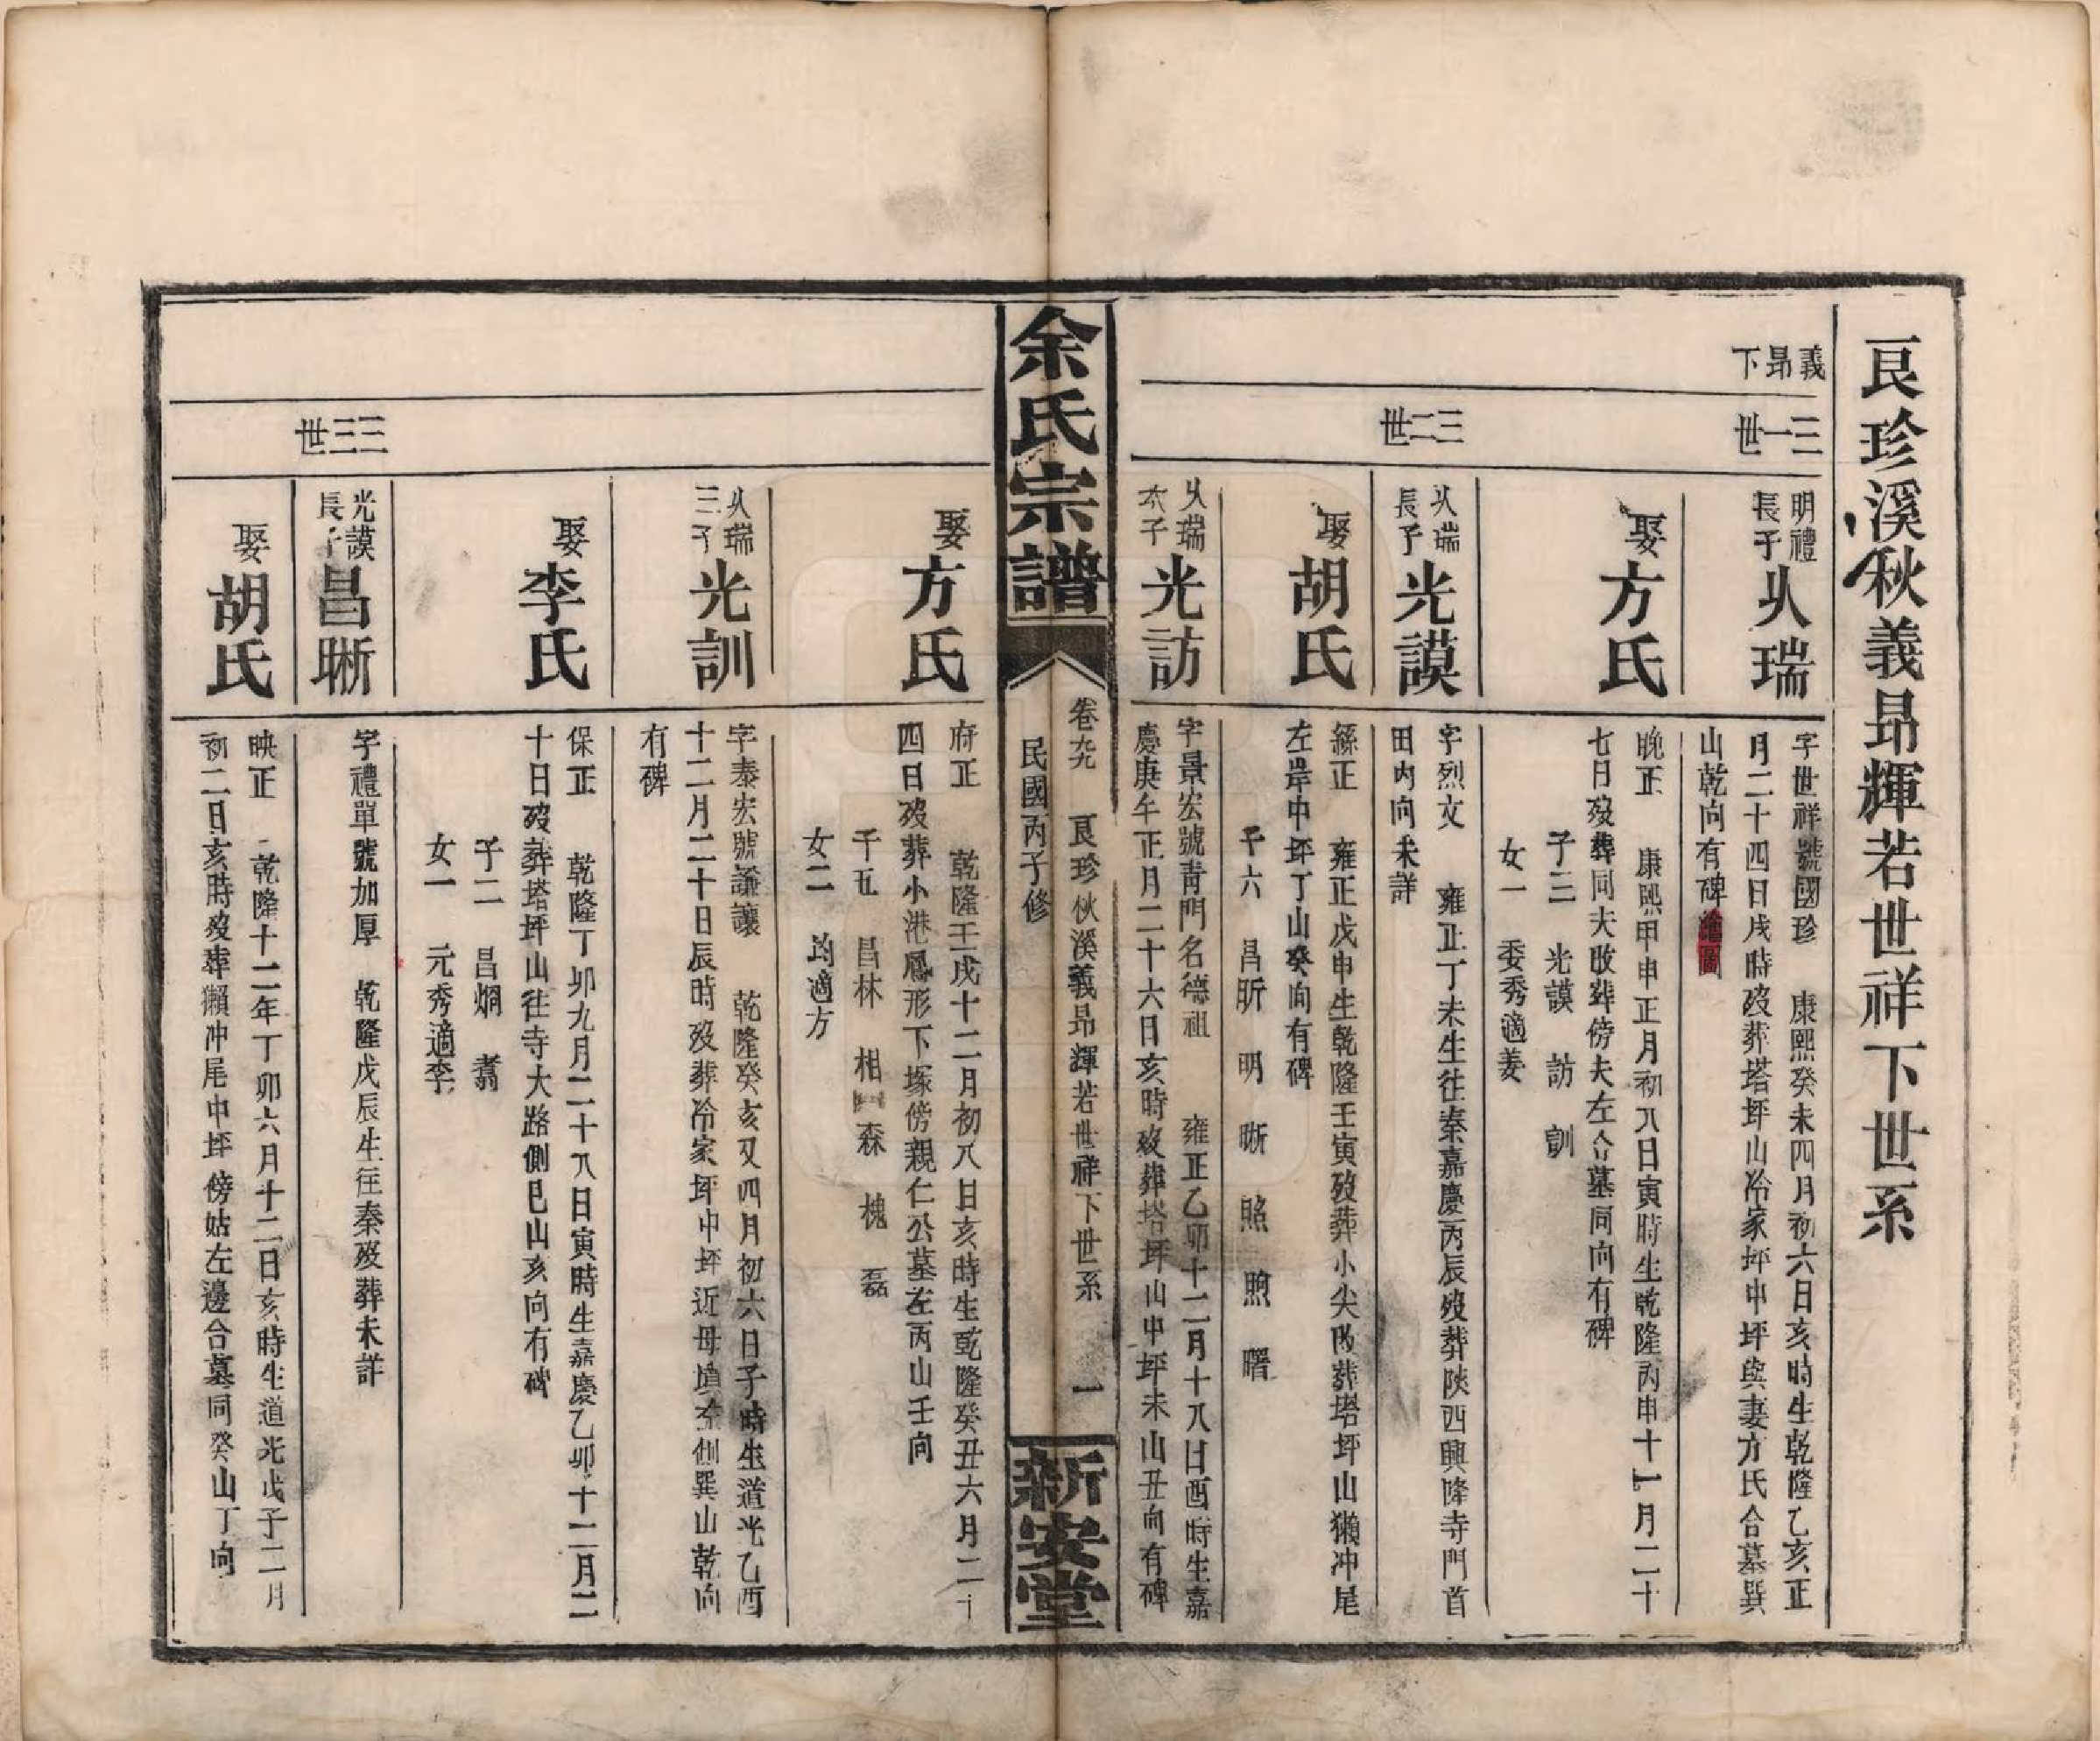 良珍溪秋義昂輝若世祥下世系
義昂下
三一世
明禮長子
乆瑞
字世祥號國珍 康熙癸未四月初六日亥時生乾隆乙亥正
月二十四日戌時歿葬塔坪山冷家坪中坪與妻方氏合墓巽
山乾向有碑繪圖
娶方氏
晚正 康熙甲申正月初八日寅時生乾隆丙申十一月二十
七日歿葬同夫改葬傍夫左合墓同向有碑
子三 光謨 訪 訓
女一 委秀適姜
三二世
乆瑞長子
光謨
字烈文 雍正丁未生往秦嘉慶丙辰歿葬陝西興隆寺門首
田內向未詳
娶胡氏
縣正 雍正戊申生乾隆壬寅歿葬小尖改葬塔坪山獺冲尾
左岸中坪丁山癸向有碑
子六 昌昕 明 晰 照 煦 曙
乆瑞次子
光訪
字景宏號靑門名德祖 雍正乙卯十二月十八日酉時生嘉
慶庚午正月二十六日亥時歿葬塔坪山中坪未山丑向有碑
余氏宗譜
卷九 良珍秋溪義昂輝若世祥下世系 一
民國丙子修
新安堂
娶方氏
府正 乾隆壬戌十二月初八日亥時生乾隆癸丑六月二十
四日歿葬小港鳳形下塚傍親仁公墓左丙山壬向
子五 昌林 相 森 槐 磊
女二 均適方
乆瑞三子
光訓
字泰宏號謙讓 乾隆癸亥又四月初六日子時生道光乙酉
十二月二十日辰時歿葬冷家坪中坪近母墳左側巽山乾向
有碑
娶李氏
保正 乾隆丁卯九月二十八日寅時生嘉慶乙卯十二月二
十日歿葬塔坪山往寺大路側巳山亥向有碑
子二 昌烱 翥
女一 元秀適李
三三世
光謨長子
昌晰
字禮單號加厚 乾隆戊辰生往秦歿葬未詳
娶胡氏
映正 乾隆十二年丁卯六月十二日亥時生道光戊子二月
初二日亥時歿葬獺冲尾中坪傍姑左邊合墓同癸山丁向